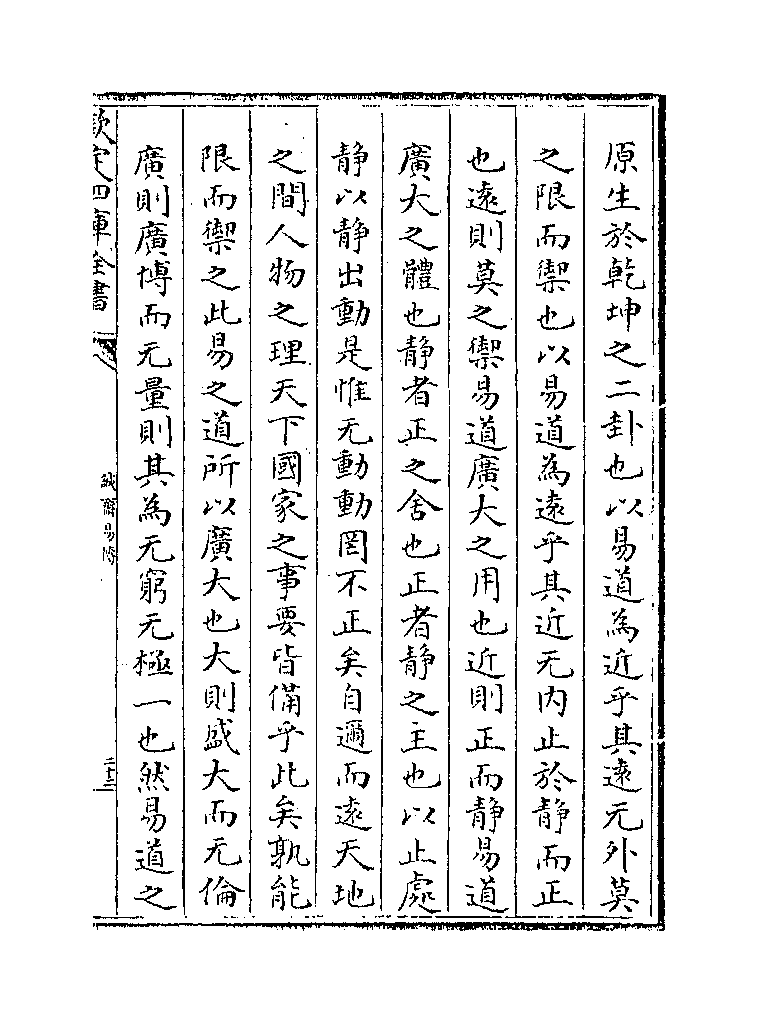 原生於乾坤之二卦也以易道為近乎其遠无外莫
之限而禦也以易道為遠乎其近无内止於静而正
也遠則莫之禦易道廣大之用也近則正而静易道
廣大之體也静者正之舍也正者静之主也以止處
静以静出動是惟无動動罔不正矣自邇而遠天地
之間人物之理天下國家之事要皆備乎此矣孰能
限而禦之此易之道所以廣大也大則盛大而无倫
廣則廣博而无量則其為无窮无極一也然易道之
欽定四庫全書
誠齋易傳
二十三